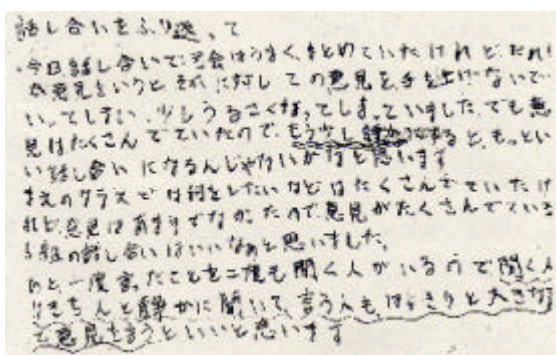 話し合いをふり返って
・今日、話し合いで、司会はうまく、まとめていたけれど、だれ
か意見をいうと、それに対しての意見を手を上げないで
いってしまい、少しうるさくなってしまっていました。でも意
見はたくさんでていたので、もう少し静かになると、もっとい
い話し合いになるんじゃないかなと思います
まえのクラスでは何をしたいなどはたくさんでていたけ
れど、意見はあまりでなかったので、意見がたくさんでている
5組の話し合いはいいなあと思いました。
あと、一度言ったことを二度も聞く人がいるので、聞く人
はきちんと静かに聞いて、言う人も、はっきりと大きな
意見を言うといいと思います